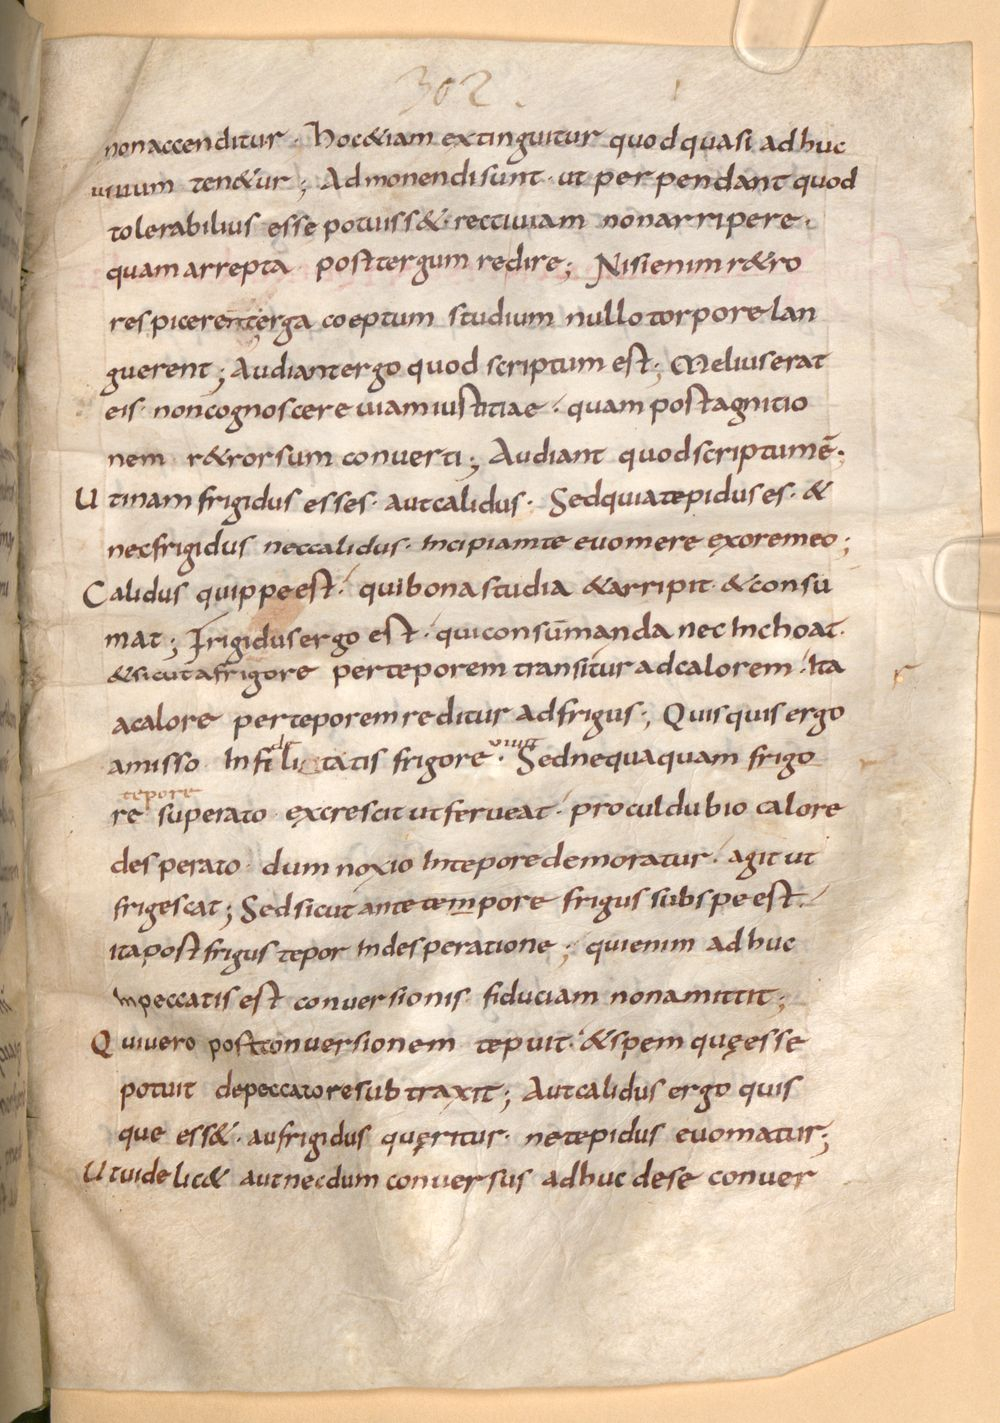 302.
non accenditur · hoc &iam extinguitur quod quasi adhuc
vivum ten&ur ; Admonendi sunt · ut perpendant quod
tolerabilius esse potuiss& · recti viam non arripere ·
quam arrepta post tergum redire ; Nisi enim r&ro
respicerent terga coeptum studium nullo torpore lan
guerent ; Audiant ergo quod scriptum est ; Melius erat
eis · non cognoscere viam iustitiae · quam post agnitio
nem r&rorsum converti ; Audiant quod scriptum ē ;
Utinam frigidus esses · aut calidus · Sed quia tepidus es · &
nec frigidus nec calidus · Incipiam te evomere ex ore meo ;
Calidus quippe est · qui bona studia &arripit · & consū
mat ; Frigidus ergo est · qui consūmanda nec Inchoat ·
& sicut a frigore per teporem transitur ad calorem · Ita
a calore per teporem reditur ad frigus ; Quisquis ergo
amisso Infidelitatis frigore vivit · Sed nequaquam frigo
tepore
re superato excrescit ut ferveat · procul dubio calore
desperato dum noxio In tepore demoratur · agit ut
frigescat ; Sed sicut ante tempore frigus sub spe est ·
ita post frigus tepor In desperatione ; qui enim adhuc
In peccatis est conversionis fiduciam non amittit ;
Qui vero post conversionem tepuit · & spem quę esse
potuit de peccatore subtraxit ; Aut calidus ergo quis
que ess& · au frigidus quęritur · ne tepidus evomatur ;
Ut videlic& aut necdum conversus adhuc de se conver